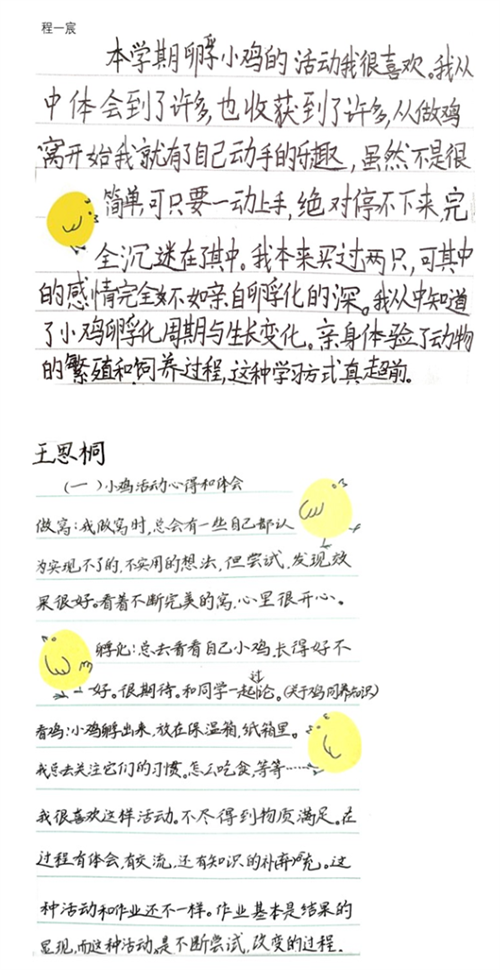 程一宸
本学期孵小鸡的活动我很喜欢。我从
中体会到了许多,也收获到了许多,从做鸡
窝开始我就有了自己动手的乐趣,虽然不是很
简单,可只要一动上手,绝对停不下来,完
全沉迷在其中。我本来买过两只,可其中
的感情完全不如亲自孵化的深。我从中知道
了小鸡孵化周期与生长变化。亲身体验了动物
的繁殖和饲养过程,这种学习方式真超前。
王恩桐
(一)小鸡活动心得和体会
做窝:我做窝时,总会有一些自己都认
为实现不了的,不实用的想法,但尝试,发现效
果很好。看着不断完美的窝,心里很开心。
孵化:总去看看自己小鸡,长得好不
好。很期待。和同学一起讨论。(关于鸡饲养知识)
看鸡:小鸡孵出来,放在保温箱,纸箱里。
我总去关注它们的习惯。怎么吃食,等等……
我很喜欢这样活动。不尽得到物质满足。在
过程有体会,有交流,还有知识的补充。这
种活动和作业还不一样。作业基本是结果的
显现,而这种活动,是不断尝试,改变的过程.